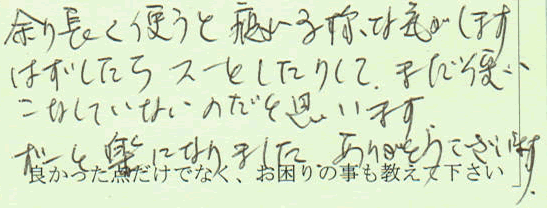 余り長く使うと痛い様な気がします
はずしたらスーとしたりして、まだ使い
こなしていないのだと思います。
ずーと楽になりました。ありがとうございます。
良かった点だけでなく、お困りの事も教えて下さい